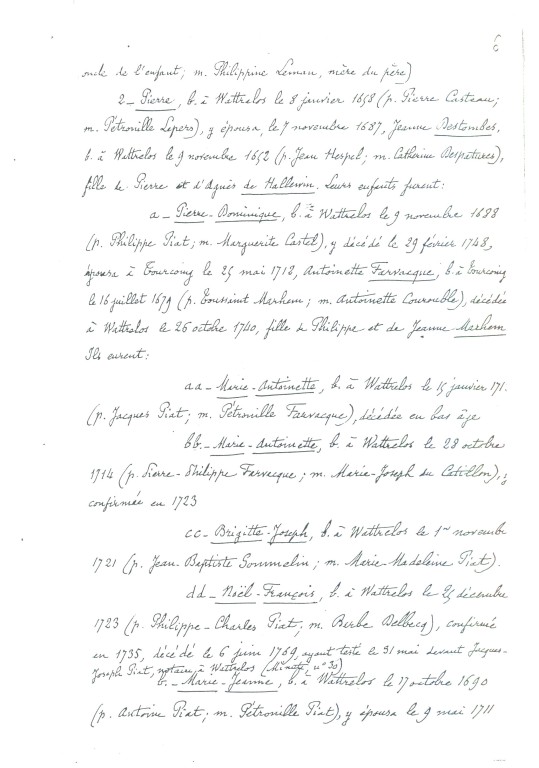 6
oncle de l'enfant; m. Philippine Leman, mère du père)
2_ Pierre, b. à Wattrelos le 8 janvier 1658 (p. Pierre Casteau;
m. Pétronille Lepers), y épousa, le 7 novembre 1687, Jeanne Destombes,
b. à Wattrelos le 9 novembre 1652 (p. Jean Hespel; m. Catherine Despatures),
fille de Pierre et d'Agnès de Hallewin. Leurs enfants furent:
a_ Pierre-Dominique, b. à Wattrelos le 9 novembre 1688
(p. Philippe Piat; m. Marguerite Castel), y décédé le 29 février 1748,
épousa à Tourcoing le 25 mai 1712, Antoinette Farvacque, b. à Tourcoing
le 16 juillet 1679 (p. Toussaint Marhem; m. Antoinette Courouble), décédée
à Wattrelos le 26 octobre 1740, fille de Philippe et de Jeanne Marhem
Ils eurent:
aa_ Marie-Antoinette, b. à Wattrelos le 15 janvier 171.
(p. Jacques Piat; m. Pétronille Farvacque), décédée en bas âge
bb_ Marie-Antoinette, b. à Wattrelos le 28 octobre
1714 (p. Pierre-Philippe Farvacque; m. Marie-Joseph du Catillon), y
confirmée en 1723
cc_ Brigitte-Joseph, b. à Wattrelos le 1er novembre
1721 (p. Jean-Baptiste Gommelin; m. Marie-Madeleine Piat).
dd_ Noël-François, b. à Wattrelos le 25 décembre
1723 (p. Philippe-Charles Piat; m. Berbe Delbecq), confirmé
en 1735, décédé le 6 juin 1769, ayant testé le 31 mai devant Jacques-
Joseph Piat, notaire à Wattrelos (Minute n° 30)
b._ Marie-Jeanne, b. à Wattrelos le 17 octobre 1690
(p. Antoine Piat; m. Pétronille Piat), y épousa le 9 mai 1711